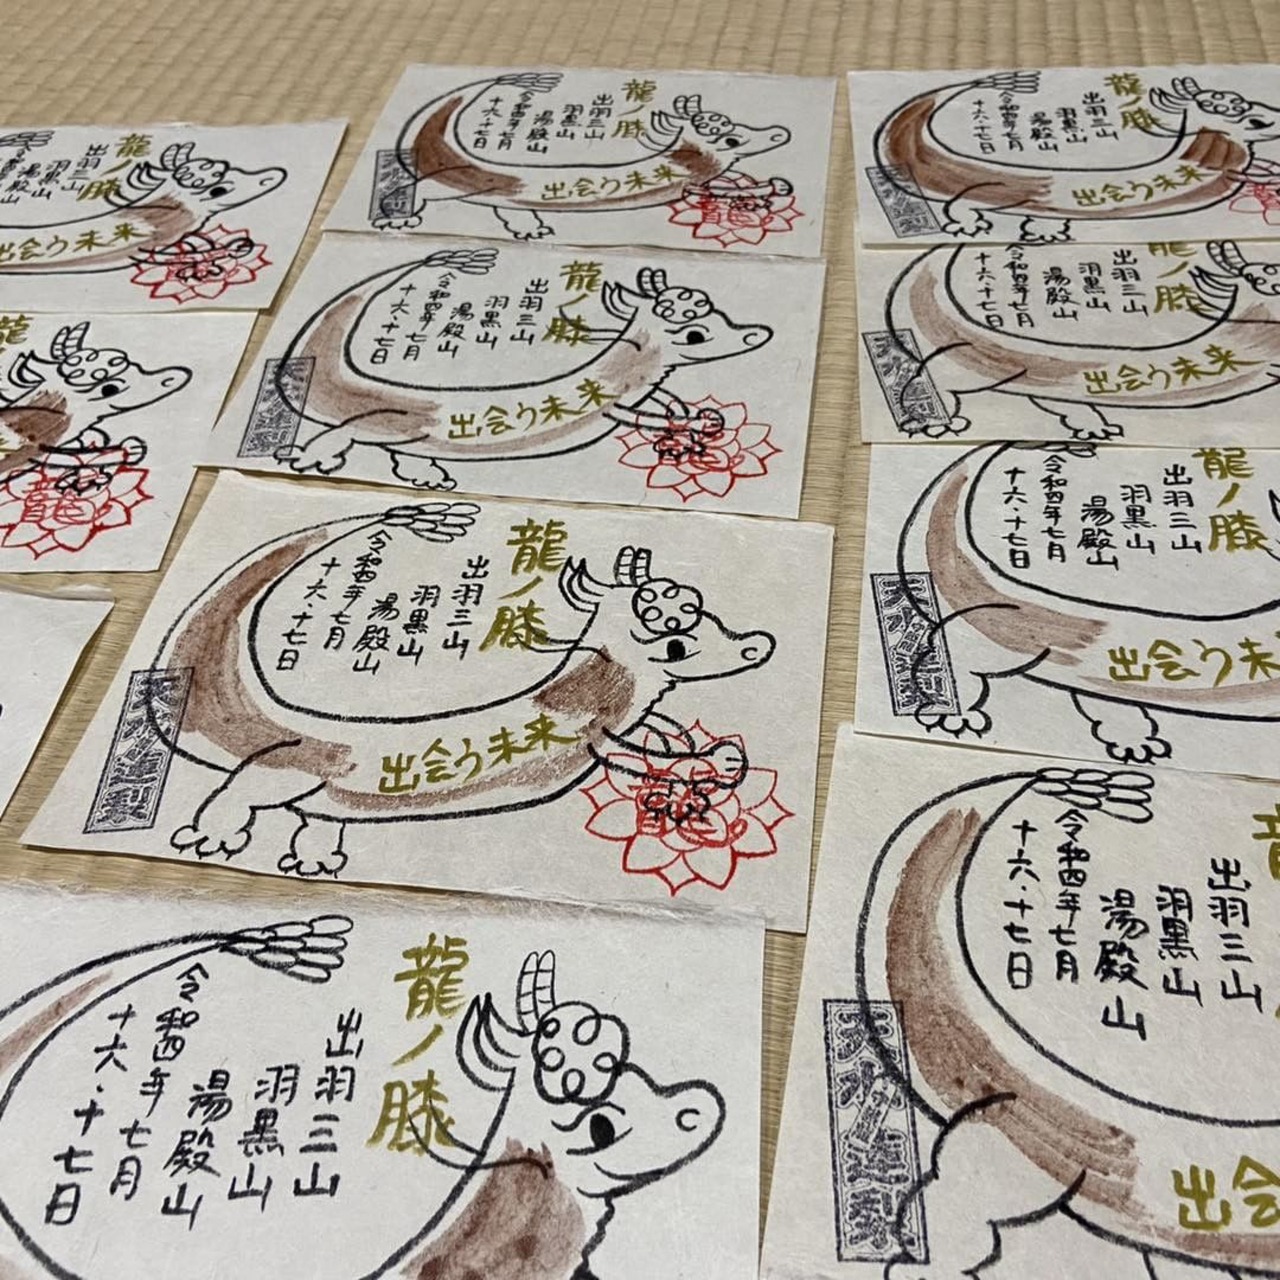 龍ノ膝
出羽三山
羽黒山
湯殿山
令和四年七月
十六・十七日
出会う未来
龍ノ膝
出羽三山
羽黒山
湯殿山
令和四年七月
十六・十七日
出会う未来
龍ノ膝
出羽三山
羽黒山
湯殿山
令和四年七月
十六・十七日
出会う未来
龍ノ膝
出羽三山
羽黒山
湯殿山
令和四年七月
十六・十七日
出会う未来
龍ノ膝
出羽三山
羽黒山
湯殿山
令和四年七月
十六・十七日
龍ノ膝
出羽三山
羽黒山
湯殿山
令和四年七月
十六・十七日
出会う未来
龍ノ膝
出羽三山
羽黒山
湯殿山
令和四年七月
十六・十七日
出会う未来
龍ノ膝
出羽三山
羽黒山
湯殿山
令和四年七月
十六・十七日
出会う未
出羽三山
羽黒山
湯殿山
令和四年七月
十六・十七日
出会